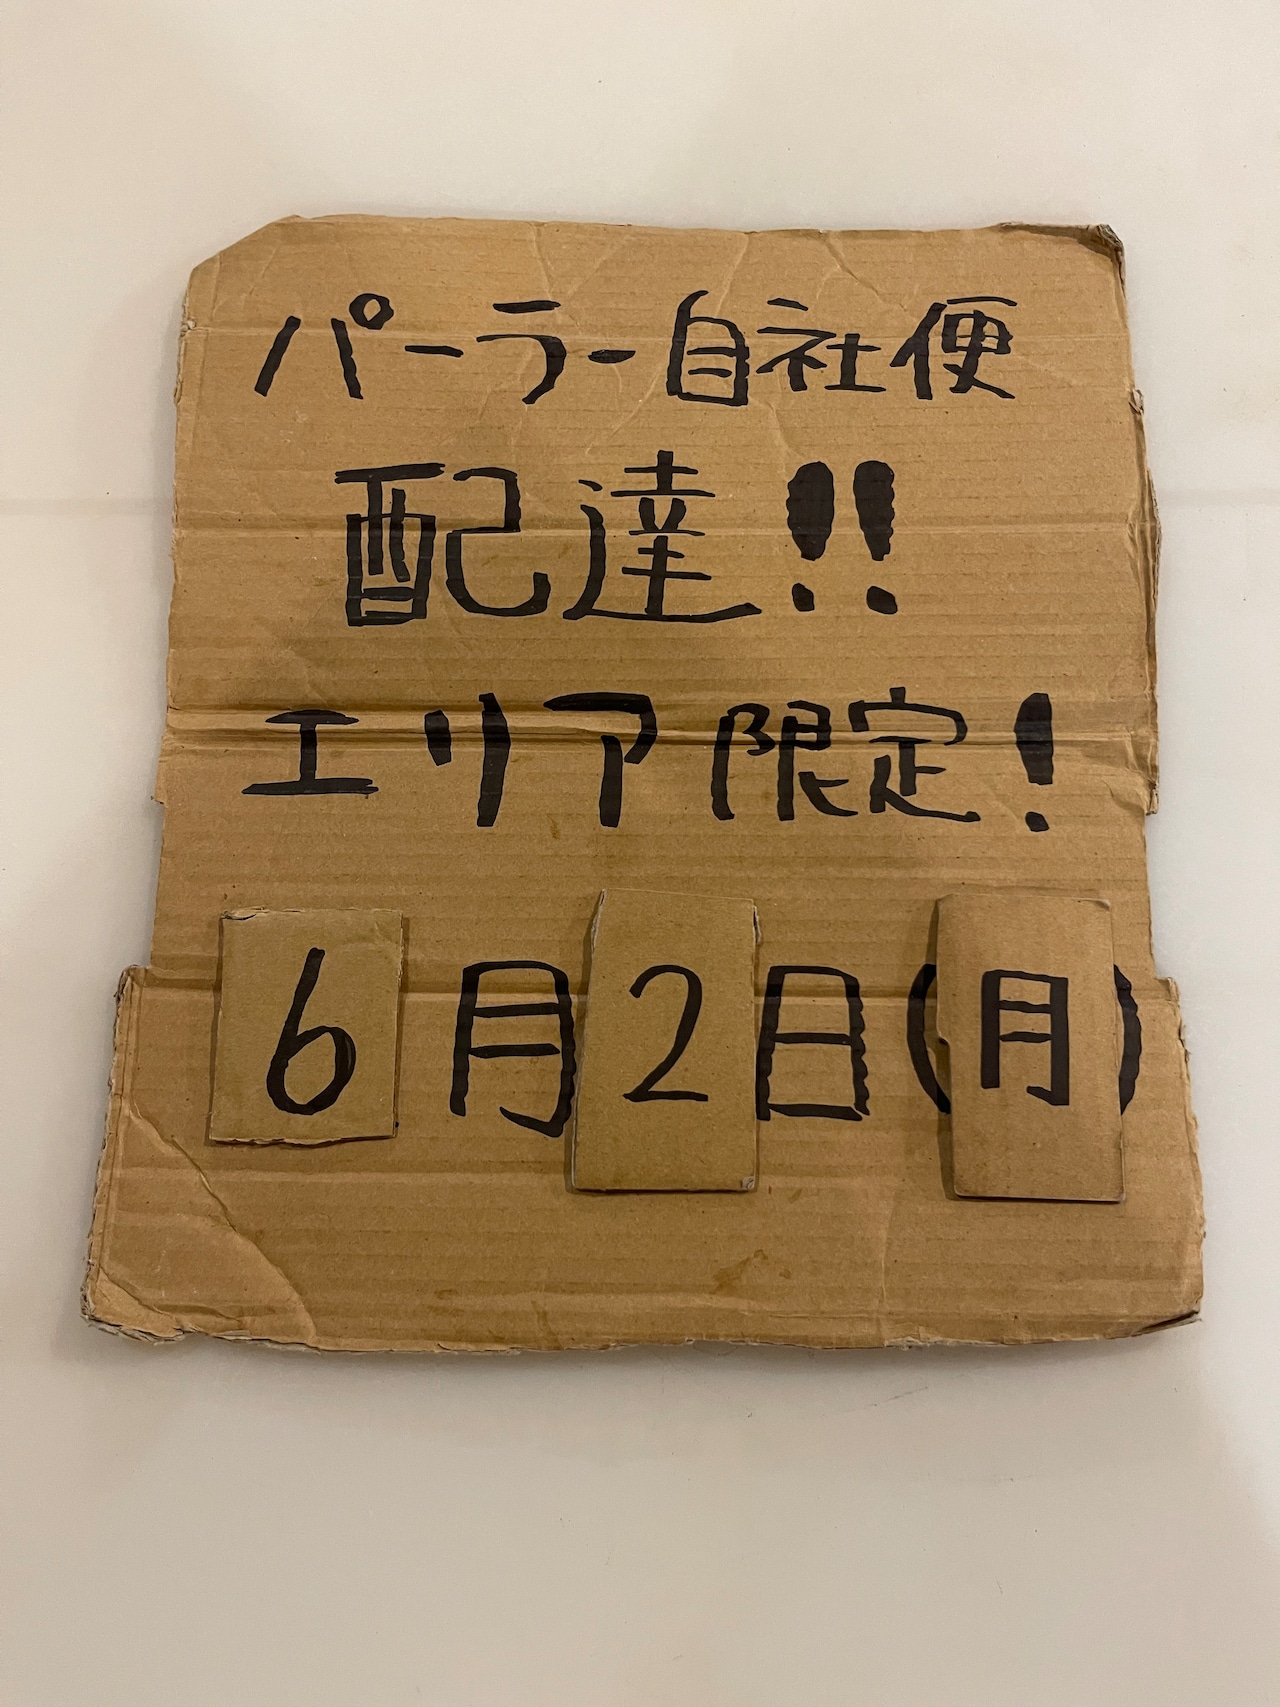 パーラー自社便
配達!!
エリア限定!
6月2日(月)